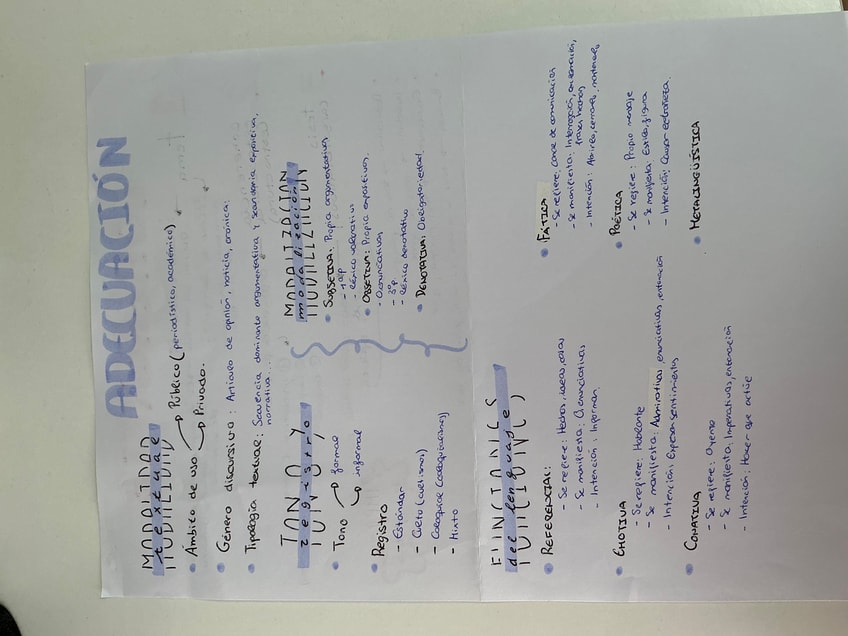 ADECUACIÓN
MODALIDAD
textual
Ámbito de uso → Público (periodístico, académico)
→ Privado.
Género discursivo: Artículo de opinión, noticia, crónica.
Tipología textual: Secuencia dominante argumentativa y secundaria expositiva,
narrativa...
TONO Y
registro
Tono → formal
→ informal
Registro
- Estándar
- Culto (cultismos)
- Coloquial (coloquialismos)
- Mixto
MODALIZACIÓN
modalización
SUBJETIVA: Propia argumentativos
- 1ªp
- Léxico valorativo
OBJETIVA: Propia expositivos.
- Enunciativas
- 3ªp
- Léxico denotativo
DENOTATIVA: Obligatoriedad.
FUNCIONES
del lenguaje
REFERENCIAL:
- Se refiere: Hechos, ideas, cosas
- Se manifiesta: Enunciativas
- Intención: Informar.
EMOTIVA
- Se refiere: Hablante
- Se manifiesta: Admirativas, enunciativas, entonación
- Intención: Expresar sentimientos
CONATIVA
- Se refiere: Oyente
- Se manifiesta: Imperativas, entonación
- Intención: Hacer que actúe
FÁTICA
- Se refiere: Canal de comunicación
- Se manifiesta: Interrogación, entonación,
frases hechas
- Intención: Abrirlo, cerrarlo, mantenerlo
POÉTICA
- Se refiere: Propio mensaje
- Se manifiesta: Estilo, figura
- Intención: Causar extrañeza.
METALINGÜÍSTICA